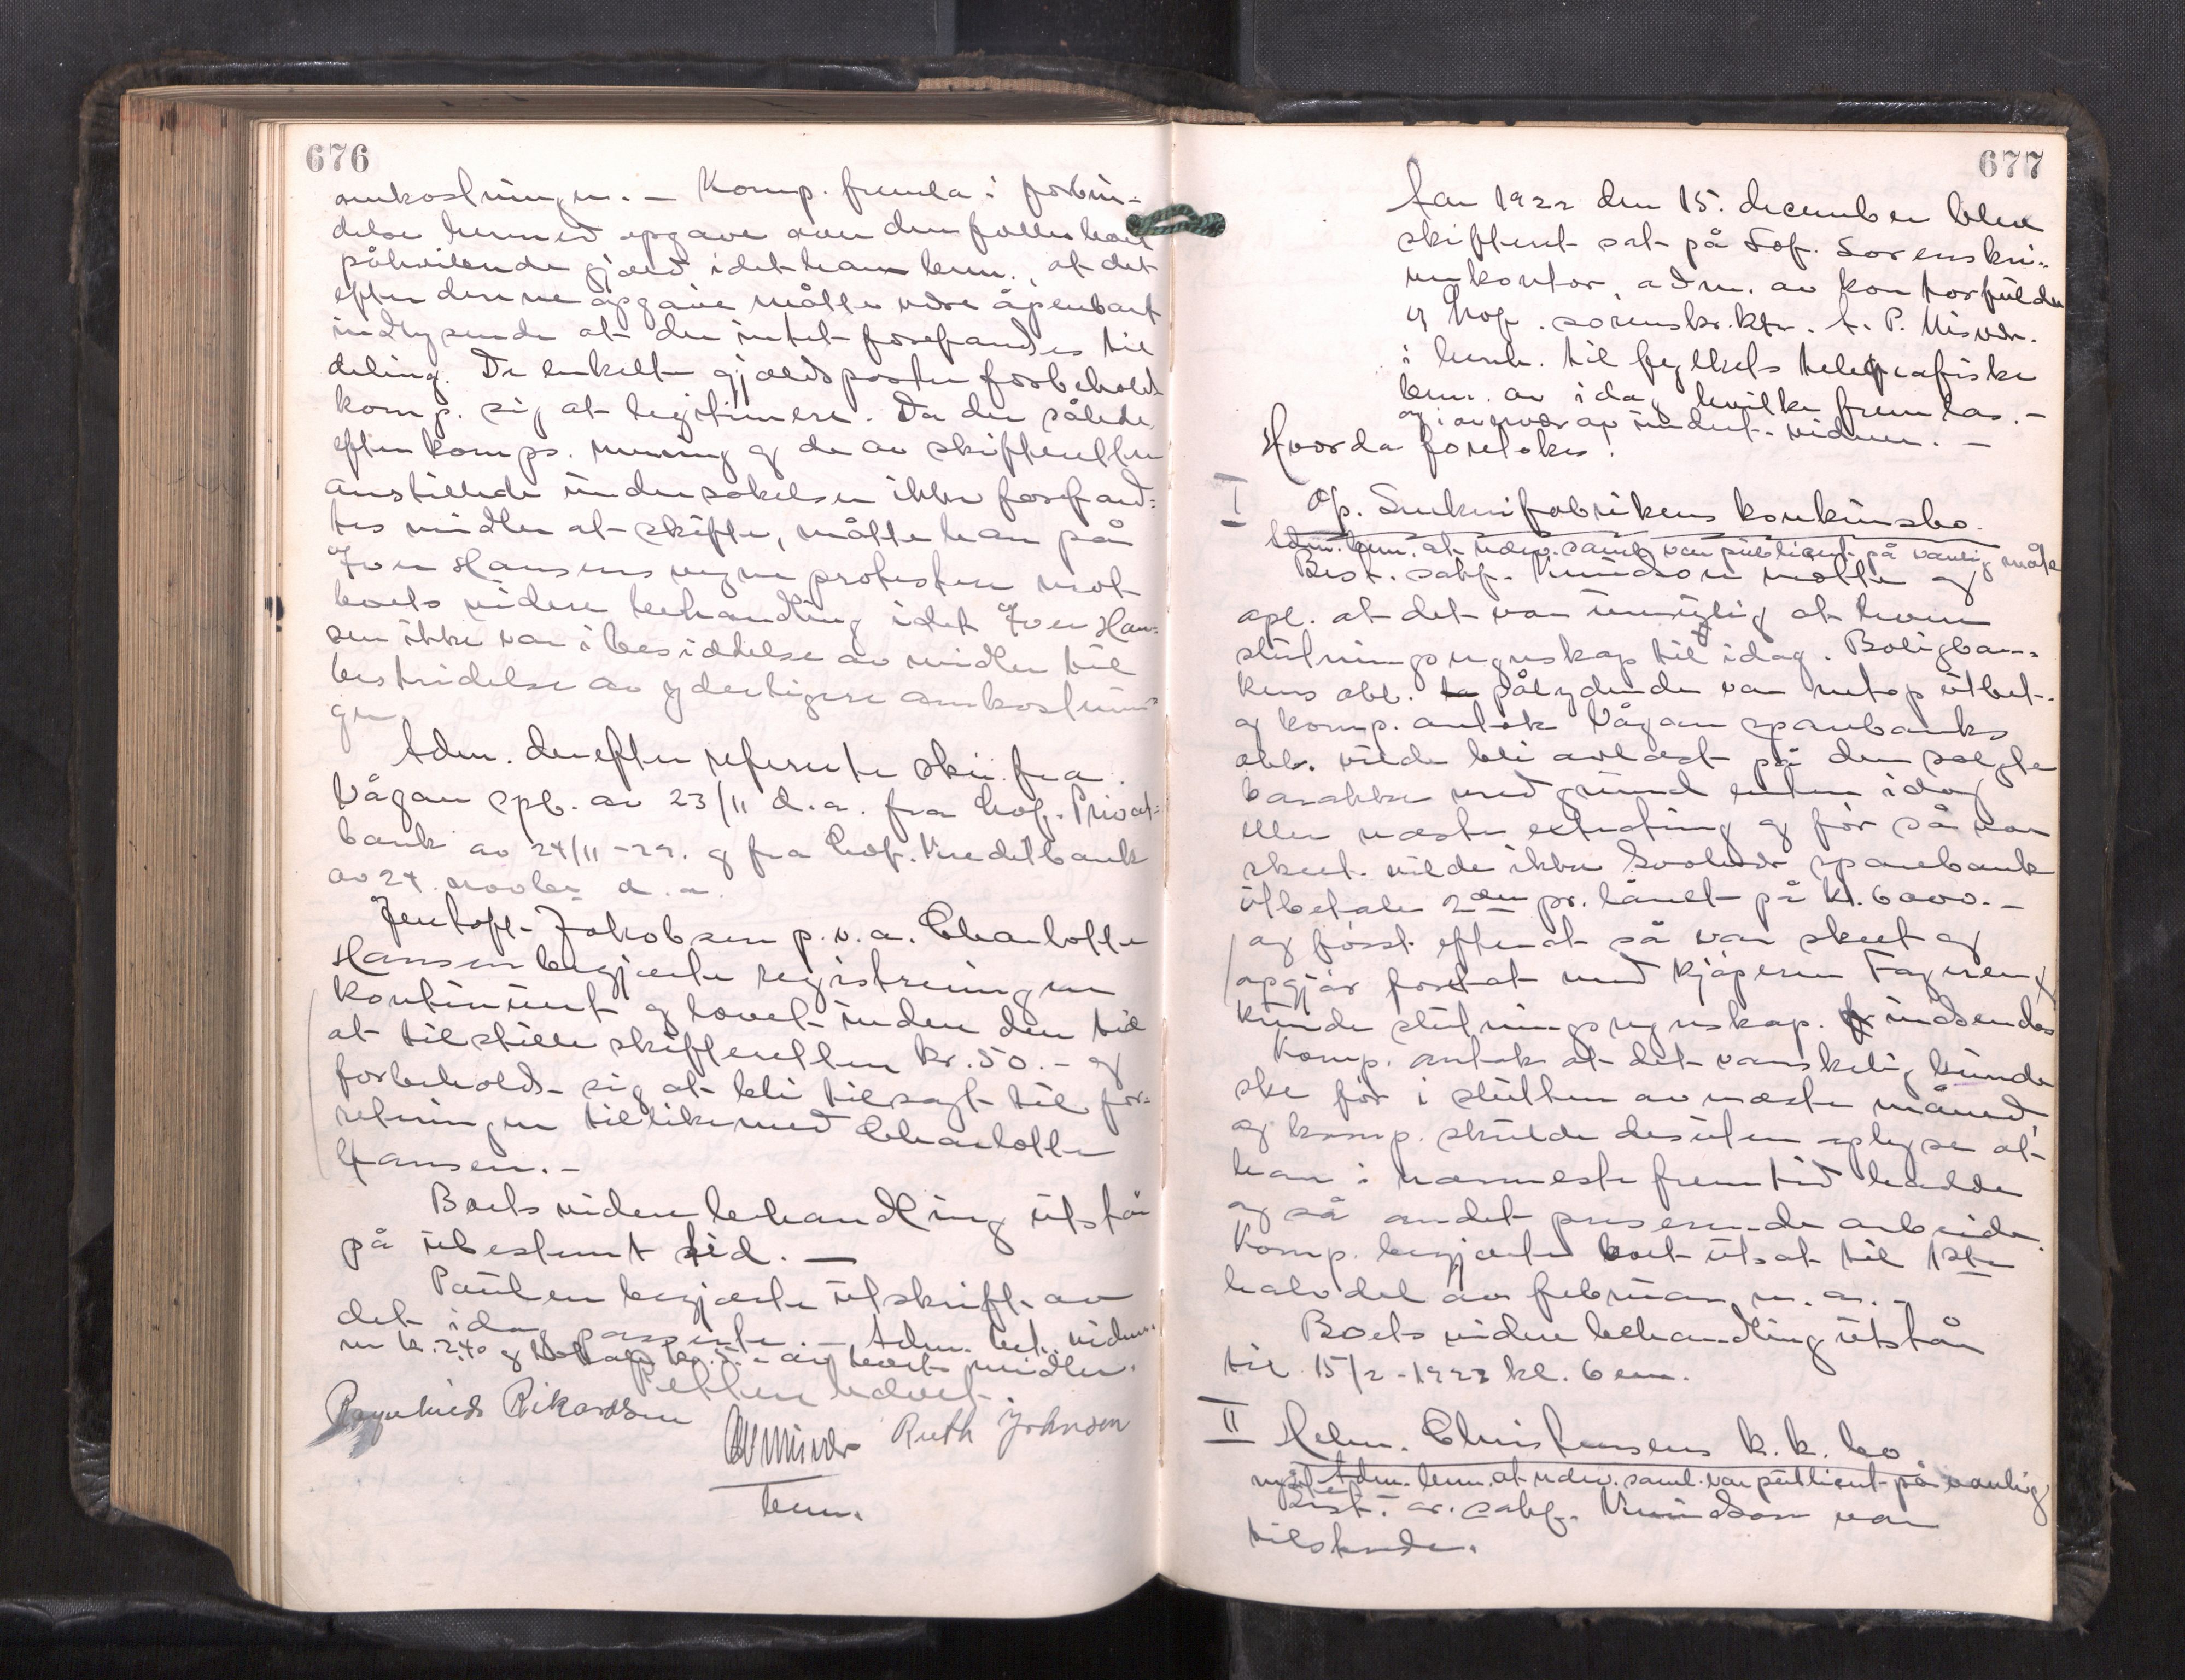 676
omkostningen. – Komp. fremla i forbin-
delse hermed opgave over den fælles boet
påhvilende gjæld idet han bem., at det
efter denne opgave måtte være åpenbart
indlysende at der intet forefandtes til
deling. De enkelte gjældsposter forbeholdt
komp. sig at legitimere. Da der således
efter komps. mening og de av skifteretten
anstillede undersøkelser ikke forefand-
tes midler at skifte, måtte han på
Iver Hansens vegne protestere mot
boets videre behandling idet Iver Han-
sen ikke var i besiddelse av midler til
bestridelse av yderligere omkostnin-
ger
Adm. derefter refererte skr. fra
Vågan spb. av 23/11 d.a. fra Lof. Privat-
bank av 24/11-22. og fra Lof. Kreditbank
av 24. novber d.a.
Jentoft-Jakobsen p.v.a. Charlotte
Hansen begjærte registreringen
kontinuert og lovet inden den tid
at tilstille skifteretten kr. 50.- og
forbeholdt sig at bli tilsagt til for-
retningen tillikemed Charlotte
Hansen. -
Boets videre behandling utstår
på ubestemt tid. –
Paulsen begjærte utskrift av
det idag passerte. – Adm. bet. vidner-
ne kr. 2.40 og kr. 5.- av boets midler.
Retten hævet.
Ragnhild Rikardsen Ruth Johnsen
Misvær
bem.
677
Aar 1922 den 15. december blev
skifteret sat på Lof. Sorenskri-
verkontor, adm. av kontorfuldm
og Lof. sorenskr.ktr. A. P. Misvær.
i henh. til fylkets telegrafiske
bem. av idag hvilke fremlas. –
og i overvær av undert. vidner. –
Hvorda foretokes:
I Op. Snekrifabrikens konkursbo.
Adm. bem. at nærv. saml. var publicert på vanlig måte
Best. sakf. Knudson møtte og
opl. at det var umulig at levere
slutningsregnskap til idag. Boligban-
kens obl. pålydende var netop utbet.
og komp. antok Vågan sparebanks
obl. vilde bli avlæst på den solgte
barakke med grund enten idag
eller næste extrating og før så var
skeet vilde ikke Svolvær sparebank
utbetale 2den pr. lånet på kr. 6000.-
og først efterat så var skeet og
opgjør foretat med kjøperen Fagereng
kunde slutningsregnskap. indsendes
Komp. antok at det vanskelig kunde
ske før i slutten av næste måned,
og komp. skulde desuten oplyse at
han i nærmeste fremtid hadde
også andet presserende arbeide.
Komp. begjærte boet utsat til 1ste
halvdel av februar n. a. –
Boets videre behandling utstår
til 15/2-1923 kl. 6 em.
II Helm. Christensens k. k. bo
Adm. bem. at nærv. saml. var publicert på vanlig
måte
Best. o.r.sakf. Knudson var
tilstede.